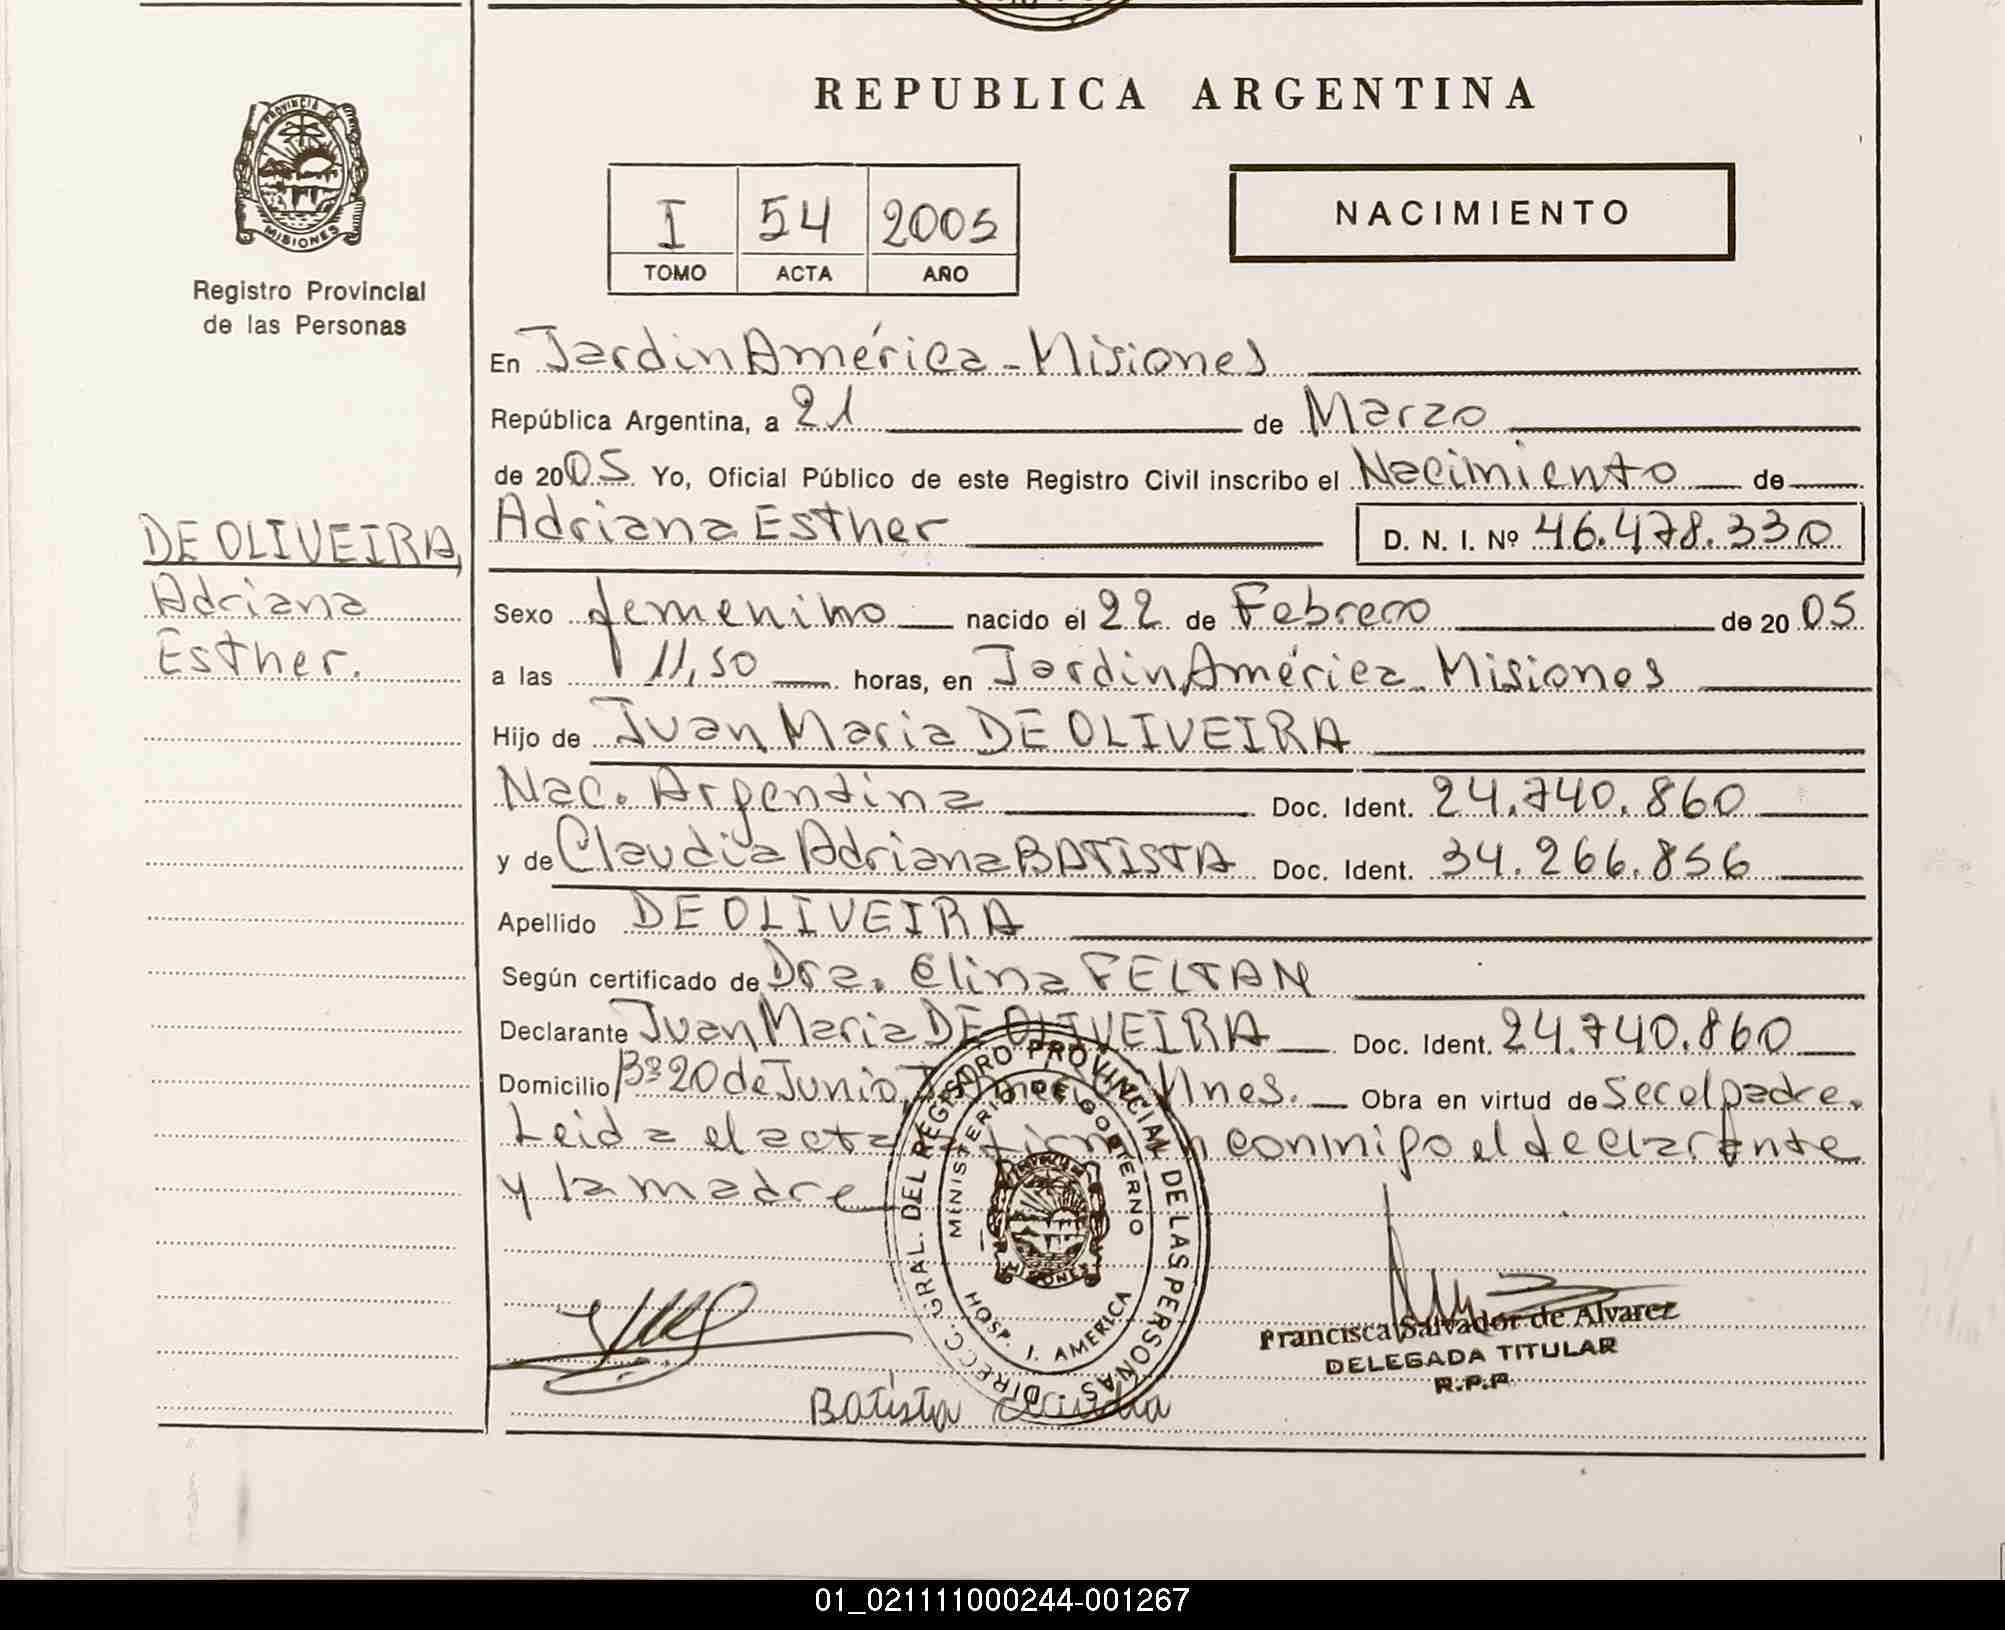 REPUBLICA ARGENTINA
PROVINCIA DE
MISIONES
Registro Provincial
de las Personas
I 54 2005
TOMO ACTA AÑO
NACIMIENTO
DE OLIVEIRA,
Adriana
Esther.
En Jardin América - Misiones
República Argentina, a 21 de Marzo
de 2005 Yo, Oficial Público de este Registro Civil inscribo el Nacimiento de
Adriana Esther D. N. I. Nº 46.478.330
Sexo femenino nacido el 22 de Febrero de 2005
a las 11,50 horas, en Jardin América - Misiones
Hijo de Juan Maria DE OLIVEIRA
Nac. Argentina Doc. Ident. 24.740.860
y de Claudia Adriana BATISTA Doc. Ident. 34.266.856
Apellido DE OLIVEIRA
Según certificado de Dra. Elina FELTAN
Declarante Juan Maria DE OLIVEIRA Doc. Ident. 24.740.860
Domicilio Bº 20 de Junio, Mnes. Obra en virtud de Se col padre.
Leida el acta firman conmigo el declarante
y la madre
DIRECC. GRAL. DEL REGISTRO PROVINCIAL DE LAS PERSONAS
MINISTERIO DE GOBIERNO
HOSP. J. AMERICA
MISIONES
Francisca Salvador de Alvarez
DELEGADA TITULAR
R.P.P.
Batista
01_021111000244-001267